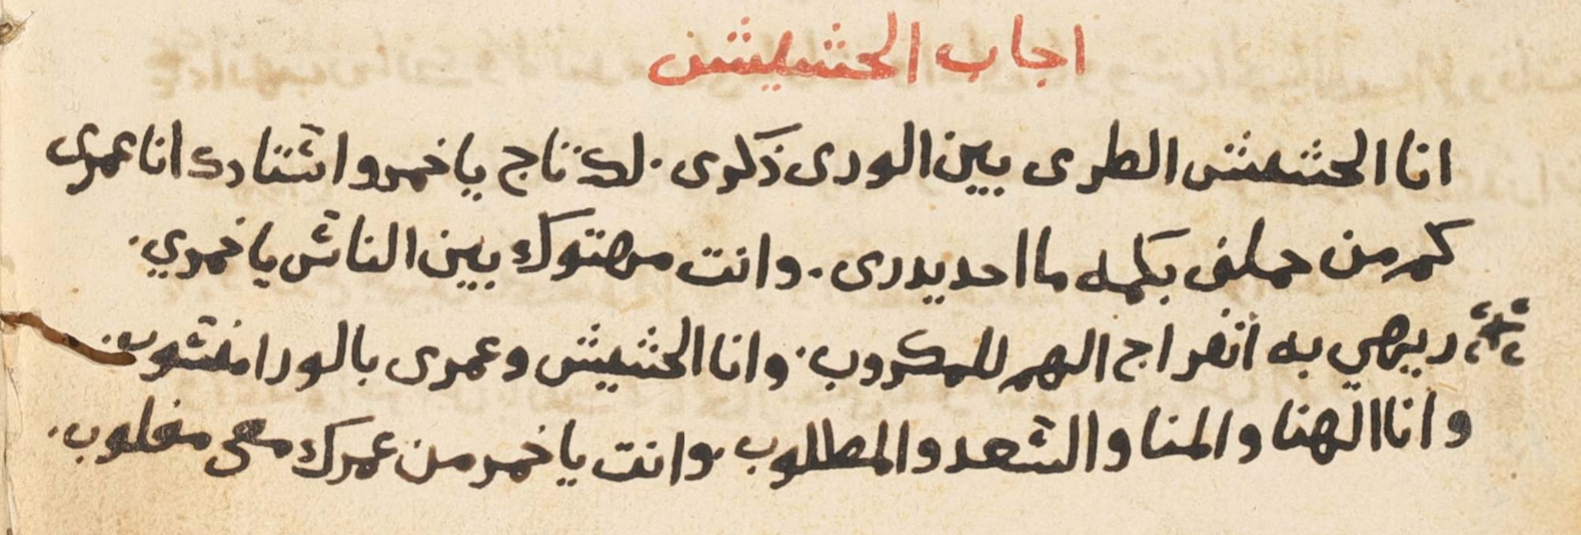 اجاب الحشيش
انا الحشيش الطرى بين الورى ذكرى . لك تاج يا خمر واشنادك انا عمرى
كم من حملنى بكمه ما احد يدرى . وانت مهتوك بين الناس يا خمري .
ريهي به انفراج الهم للمكروب . وانا الحشيش وعمرى بالورا
وانا الهنا والمنا والسعد والمطلوب . وانت يا خمر من عمرك معى مغلوب .